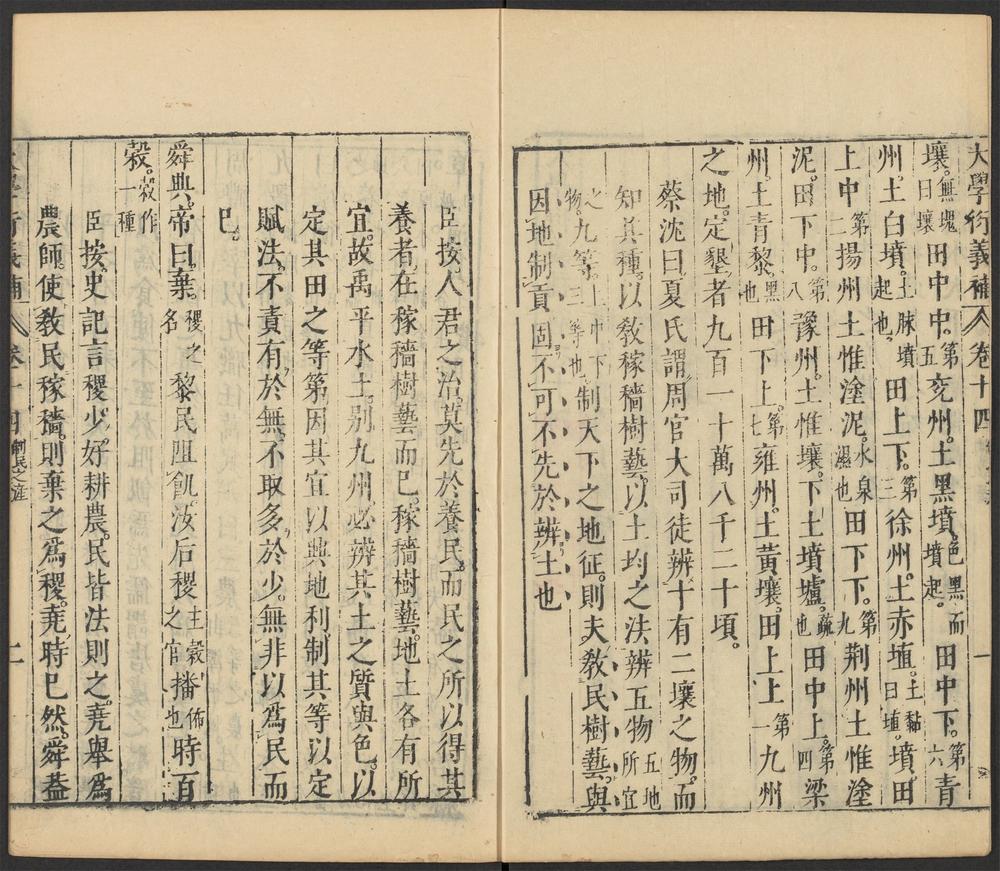 大學衍義補 卷十四 一
壤。無塊曰壤田中中。第五兗州。土黑墳。色黑而墳起。田中下。第六青
州。土白墳。土脉墳起也。田上下。第三徐州。土赤埴。土黏曰埴。墳。田
上中第二揚州土惟塗泥。水泉濕也田下下。第九荆州土惟塗
泥。田下中。第八豫州。土惟壤。下土墳壚。疏也田中上。第四梁
州。土青黎。黑也田下上。第七雍州。土黃壤。田上上第一九州
之地。定墾者九百一十萬八千二十頃。
蔡沈曰夏氏謂周官大司徒辨十有二壤之物。而
知其種。以敎稼穡樹藝。以土均之法辨五物五地所宜
之物。九等。上中下三等也制天下之地征。則夫敎民樹藝。與
因地制貢固不可不先於辨土也
臣按人君之治。莫先於養民。而民之所以得其
養者。在稼穡樹藝而已。稼穡樹藝。地土各有所
宜。故禹平水土。别九州必辨其土之質與色。以
定其田之等第。因其宜以興地利。制其等以定
賦法。不責有於無。不取多於少。無非以爲民而
已。
舜典。帝曰。棄。稷之名黎民阻飢汝后稷主穀之官播佈也時百
穀。穀作一種
臣按史記言稷少好耕農。民皆法則之。堯舉爲
農師。使敎民稼穡。則棄之爲稷。堯時已然。舜蓋
卷十四 制民之產 二